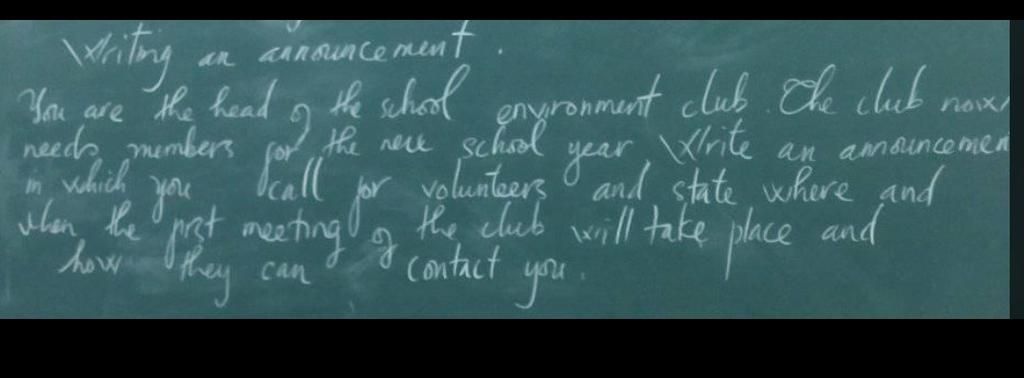 Writing an announcement.
You are the head of the school environment club. The club now
needs members for the new school year Write an announcemen
in which you call for volunteers and state where and
when the first meeting of the club will take place and
how they can contact you.